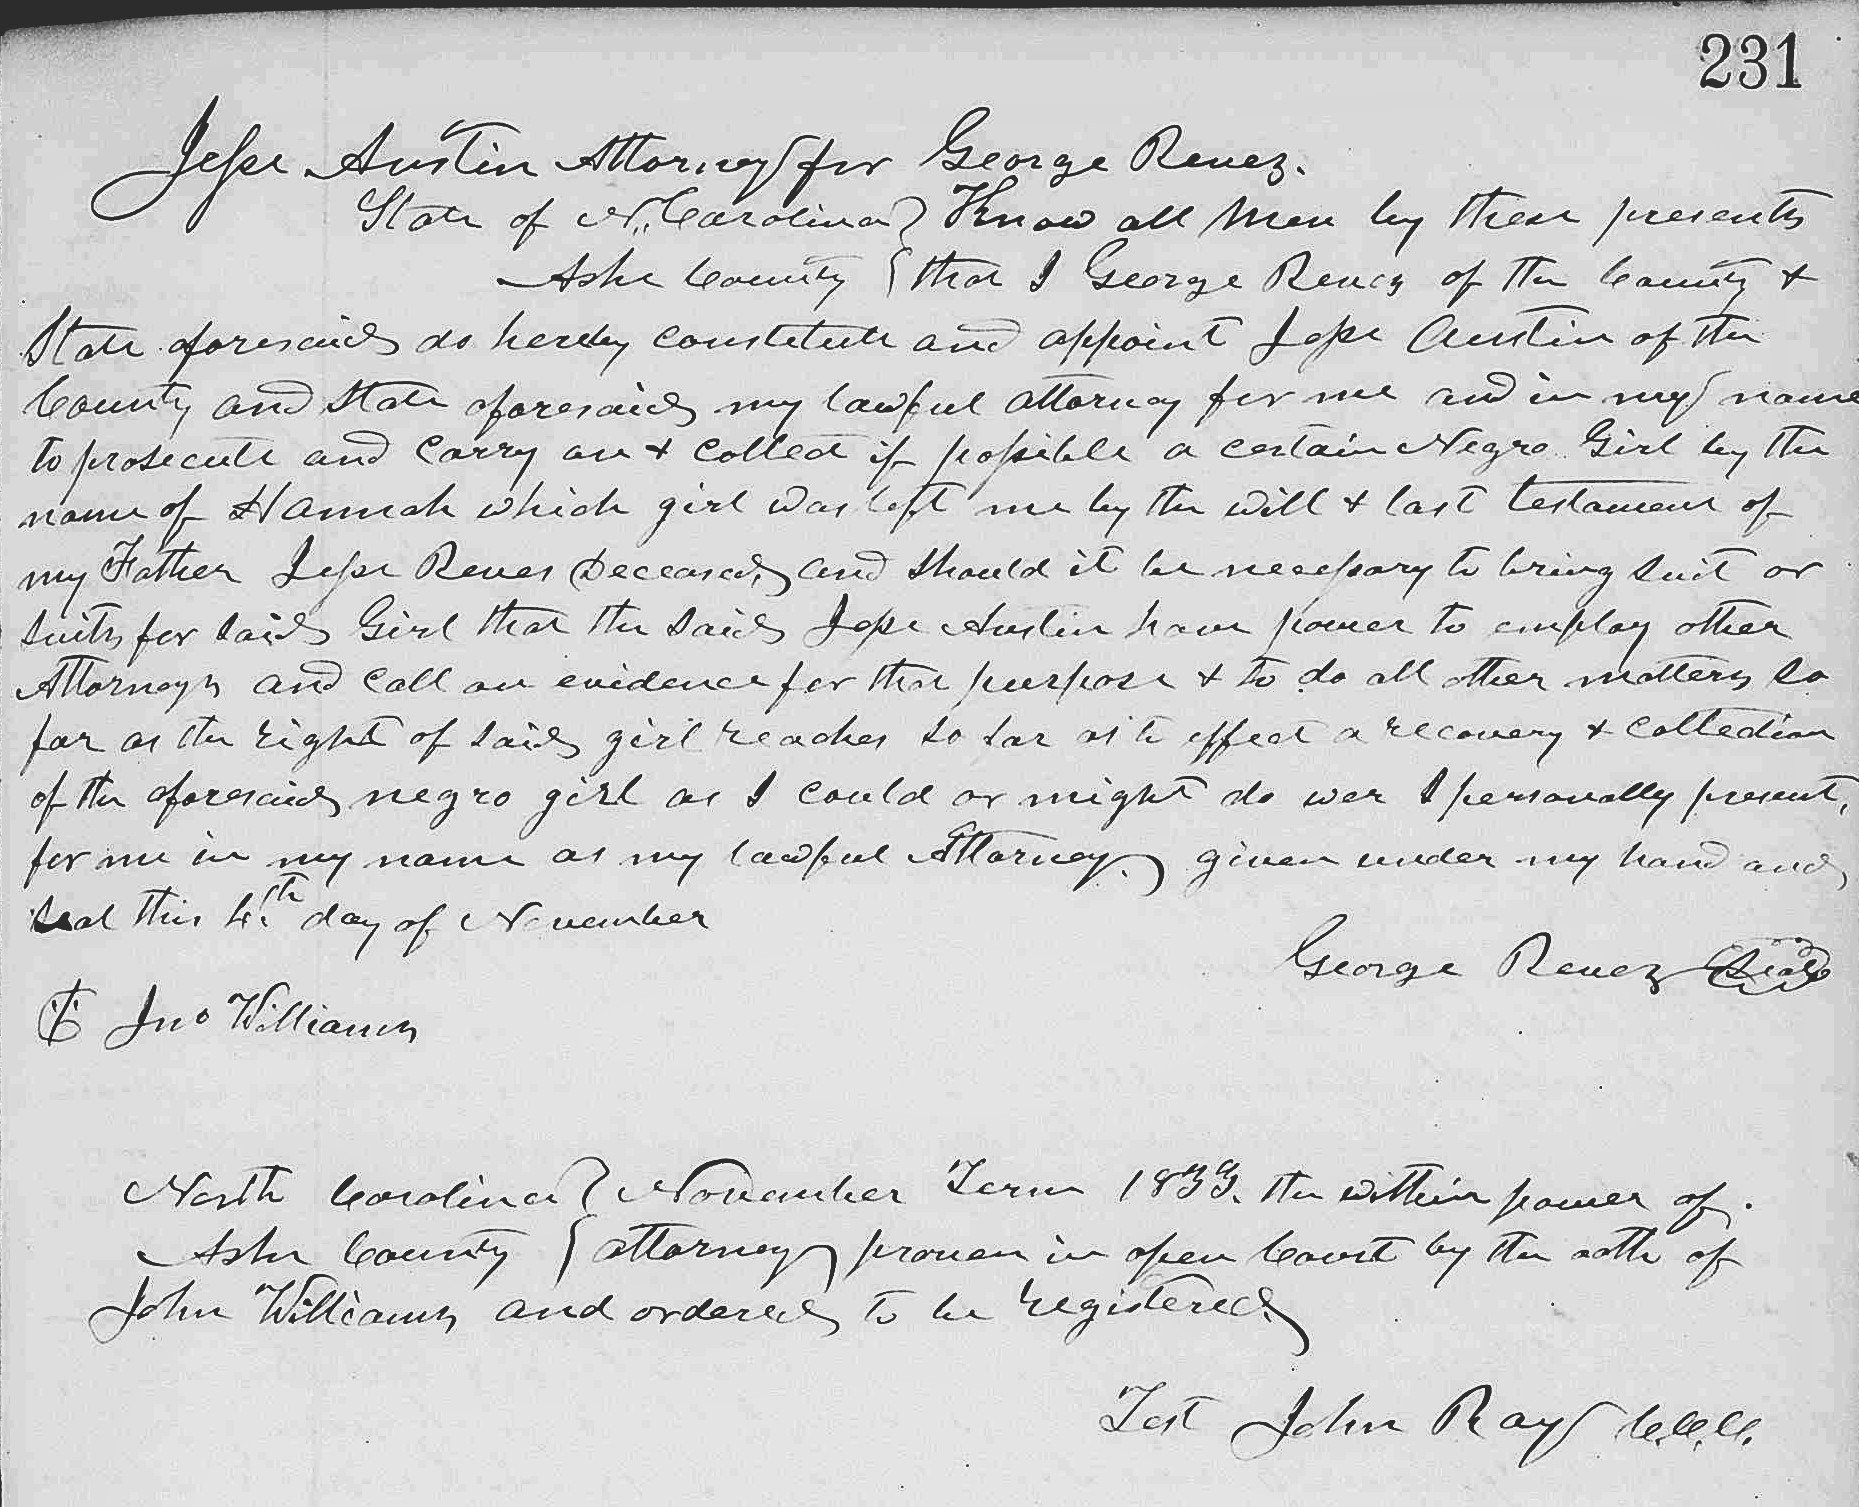 231
Jesse Austin Attorney for George Reves.
State of N. Carolina } Know all Men by these presents
Ashe County } that I George Reves of the County &
State aforesaid do hereby constitute and appoint Jesse Austin of the
County and State aforesaid my lawful attorney for me and in my name
to prosecute and carry on & collect if possible a certain Negro Girl by the
name of Hannah which girl was left me by the will & last testament of
my Father Jesse Reves Deceased, and should it be necessary to bring suit or
suits for said Girl that the said Jesse Austin have power to employ other
Attorneys and call on evidence for that purpose & to do all other matters so
far as the right of said girl reaches so far as to effect a recovery & collection
of the aforesaid negro girl as I could or might do wer I personally present,
for me in my name as my lawful Attorney. given under my hand and
seal this 4th day of November
George Reves Seal
Jno Williams
North Carolina } November Term 1833. the within power of
Ashe County } attorney proven in open Court by the oath of
John Williams and ordered to be registered
Test John Ray C.C.C.